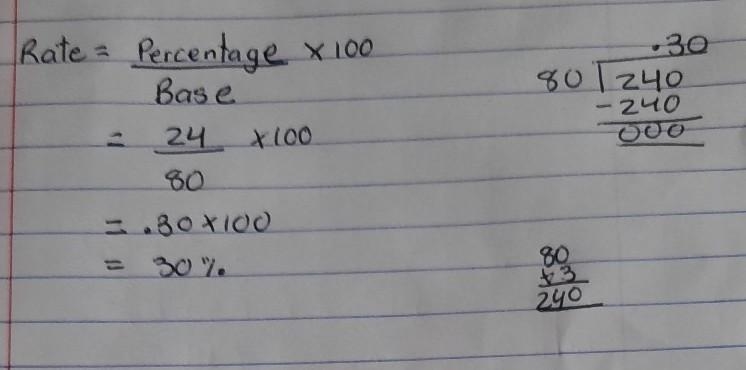 Rate = Percentage × 100
Base
= 24 × 100
80
= .30 × 100
= 30 %.
.30
80 ) 240
- 240
000
80
× 3
240